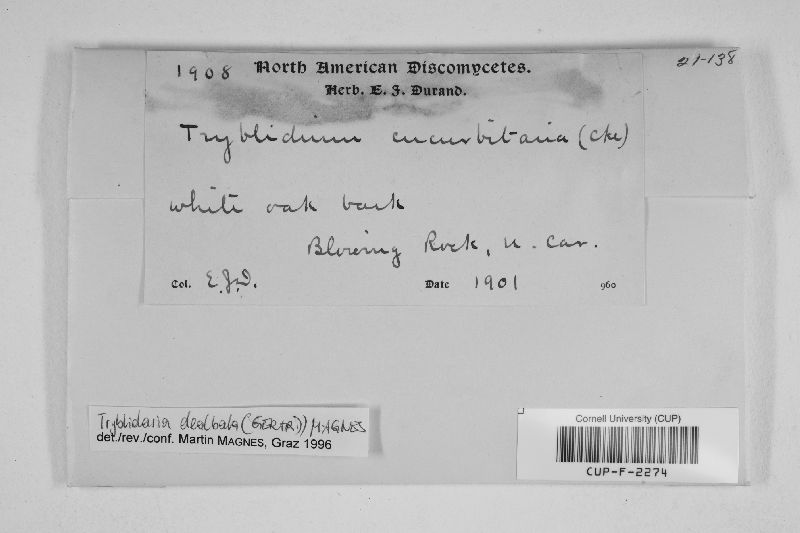 1908 North American Discomycetes.
21-138
Herb. E. J. Durand.
Tryblidium cucurbitaria (Cke)
white oak bark
Blowing Rock, N. Car.
Col. E.J.D. Date 1901 960
Tryblidaria dealbata (GERARD) MAGNES
det./rev./conf. Martin MAGNES, Graz 1996
Cornell University (CUP)
CUP-F-2274